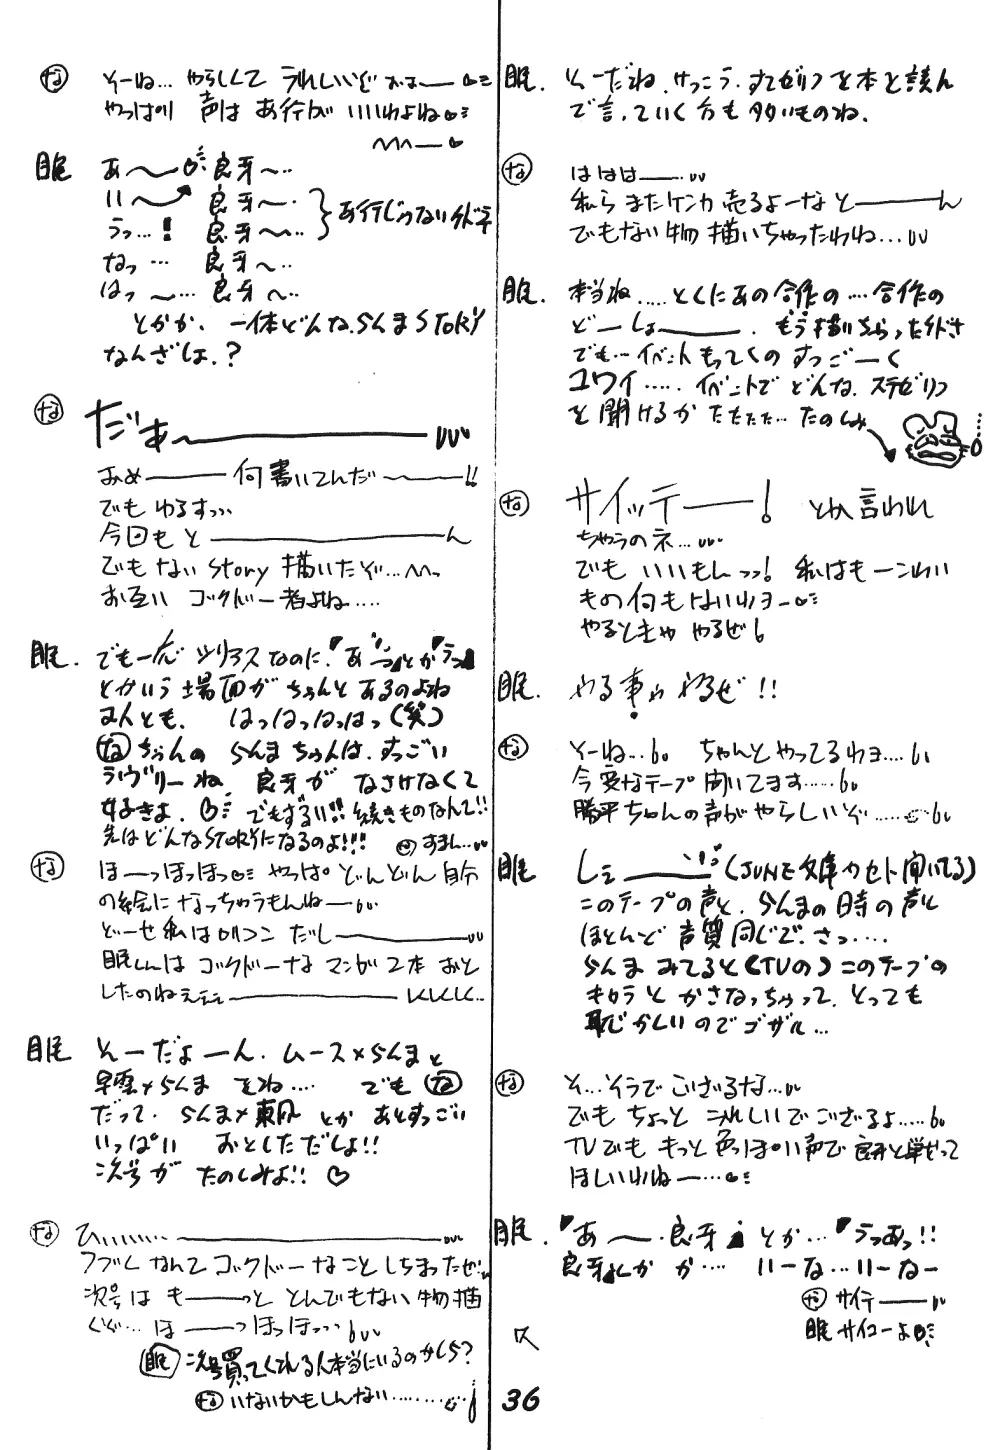 眠. そーだね、けっこう、すてゼリフを本と読ん
で言っていく方も多いものね。
な ははは——…
私らまたケンカ売るよーなと———ん
でもない物描いちゃったわね…
眠. 本当ね……とくにあの合作の…合作の
どーしょ———. もう描いちゃったけどさ
でも…イベントもってくのすっごーく
コワイ….. イベントでどんなステゼリフ
を聞けるか たたたた… たのしみ
な サイッテー——! とか言われ
ちゃうのネ…
でもいいもんっっ! 私はもーこわい
もの何もないわヨー
やるときゃやるぜ
眠. やる事ゃやるぜ!!
な そーね… ちゃんとやってるわヨ….
今変なテープ聞いてます……
勝平ちゃんの声がやらしいぞ……
眠 し———(JUNE文庫カセット聞いてる)
このテープの声と、らんまの時の声と
ほとんど声質同じで、さっ….
らんまみてると(TVの)このテープの
キャラとかさなっちゃって、とっても
恥かしいのでゴザル…
な そ…そうでござるな…
でもちょっとうれしいでござるよ…..
TVでももっと色っぽい声で良牙と戦って
ほしいわねー…
眠. 「あ〜・良牙」とか…「うっあっ!!
良牙」とかか…. いーな…いーなー
な サイテー——
眠 サイコーよ
な そーね… やらしくてうれしいぞおほー—
やっぱり声はあ行がいいわよね
眠 あ〜 良牙〜…
い〜 良牙〜・
うっ…! 良牙〜…
あ行じゃないけど
なっ… 良牙〜…
はっ〜… 良牙〜…
とかか、一体どんならんまSTORY
なんざしょ.?
な だぁ〜———
おめ———何書いてんだ〜——!!
でもゆるすっ
今回もと————————ん
でもないStory描いたぞ…
お互いゴックドー者よね….
眠. でも一応シリアスなのに、「あっ」とか「うっ」
とかいう場面がちゃんとあるのよね
2人とも. はっはっはっはっ(笑)
なちゃんのらんまちゃんは、すっごい
ラヴリーね、良牙がなさけなくて
好きよ. でもずるい!! 続きものなんて!!
先はどんなSTORYになるのよ!!! すまん…
な ほーっほっほっ やっぱどんどん自分
の絵になっちゃうもんねー
どーせ私はロリコンだし————
眠くんはゴックドーなマンガ2本おと
したのねェェェ————しくしく…
眠 そーだよーん. ムース×らんまと
早雲×らんまをね…. でも な
だって、らんま×東風とかあとすっごい
いっぱい おとしただしょ!!
次号がたのしみよ!! ♡
な ひぃぃぃぃ…————
フブくなんてゴックドーなことしちまったぜ
次号はも——っととんでもない物描
くぞ… ほ——っほっほっ
眠 次号買ってくれる人本当にいるのかしら?
な いないかもしんない………
36